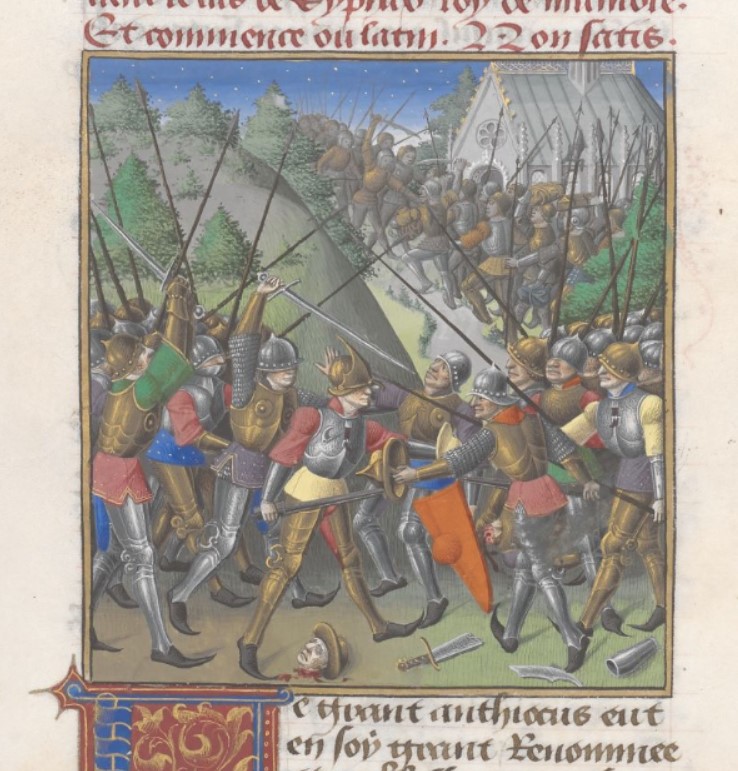 de Syphao roy de numidie.
Et commence ou latin. Non satis.
Le grant anthiocus eut
en soy grant Renommee